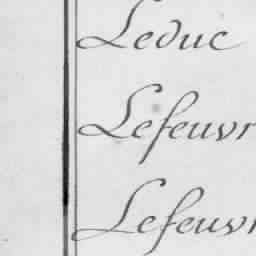 Leduc
Lefeuvr
Lefeuvr